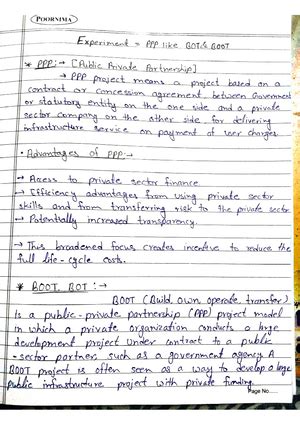 POORNIMA
Experiment = PPP like BOT & BOOT
* PPP:→ [Public Private Partnership]
→ PPP project means a project based on a
contract or concession agreement, between Government
or statutory entity on the one side and a private
sector company on the other side, for delivering
infrastructure service on payment of user charges.
• Advantages of PPP:→
→ Access to private sector finance.
→ Efficiency advantages from using private sector
skills and from transferring risk to the private sector
→ Potentially increased transparency.
→ This broadened focus creates incentive to reduce the
full life-cycle costs.
* BOOT, BOT:→
BOOT (Build, own, operate, transfer)
Is a public-private partnership (PPP) project model
in which a private organization conducts a large
development project under contract to a public
-sector partner, such as a government agency. A
BOOT project is often seen as a way to develop a large
public infrastructure project with private funding.
Page No......